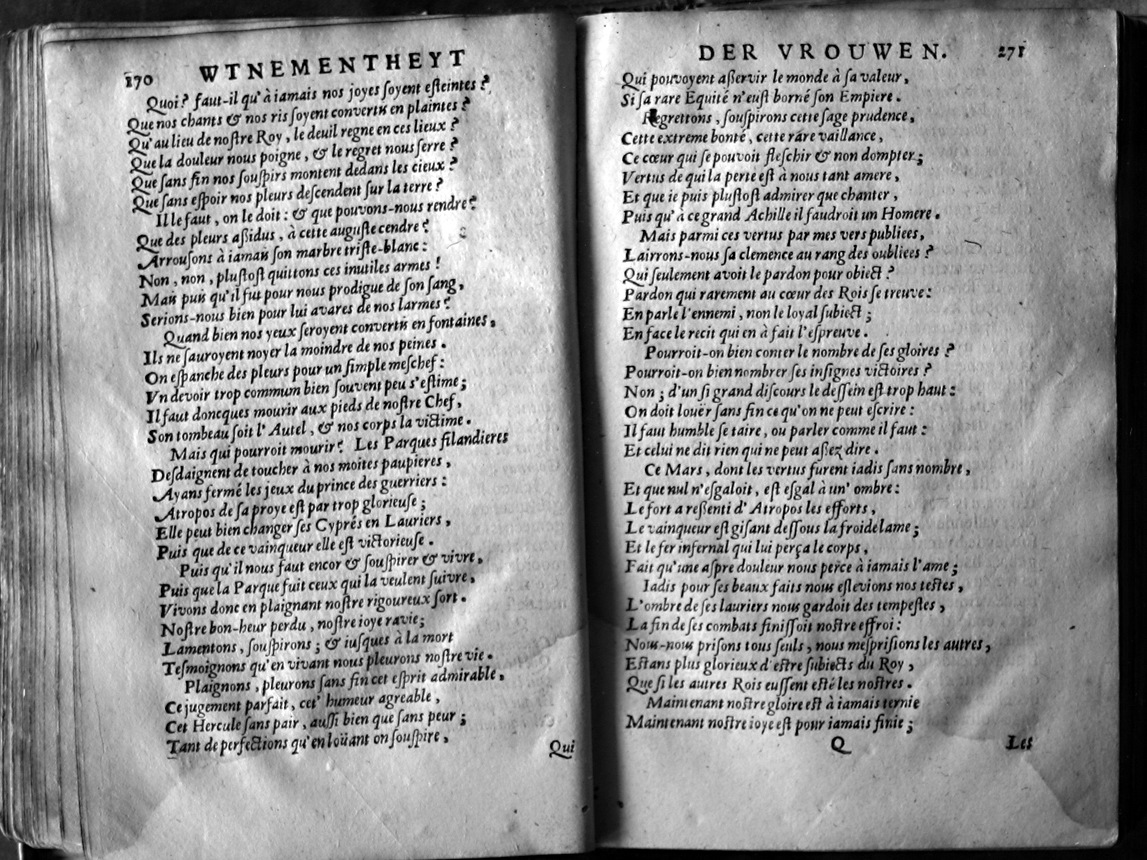 170 WTNEMENTHEYT
Quoi? faut-il qu'à iamais nos joyes soyent esteintes?
Que nos chants & nos ris soyent convertis en plaintes?
Qu'au lieu de nostre Roy, le deuil regne en ces lieux?
Que la douleur nous poigne, & le regret nous serre?
Que sans fin nos souspirs montent dedans les cieux?
Que sans espoir nos pleurs descendent sur la terre?
Il le faut, on le doit: & que pouvons-nous rendre?
Que des pleurs aßidus, à cette auguste cendre?
Arrousons à iamais son marbre triste-blanc:
Non, non, plustost quittons ces inutiles armes!
Mais puis qu'il fut pour nous prodigue de son sang,
Serions-nous bien pour lui avares de nos larmes?
Quand bien nos yeux seroyent convertis en fontaines,
Ils ne sauroyent noyer la moindre de nos peines.
On espanche des pleurs pour un simple meschef:
Vn devoir trop commum bien souvent peu s'estime;
Il faut doncques mourir aux pieds de nostre Chef,
Son tombeau soit l'Autel, & nos corps la victime.
Mais qui pourroit mourir? Les Parques filandieres
Desdaignent de toucher à nos moites paupieres,
Ayans fermé les jeux du prince des guerriers:
Atropos de sa proye est par trop glorieuse;
Elle peut bien changer ses Cyprés en Lauriers,
Puis que de ce vainqueur elle est victorieuse.
Puis qu'il nous faut encor & souspirer & vivre,
Puis que la Parque fuit ceux qui la veulent suivre,
Vivons donc en plaignant nostre rigoureux sort.
Nostre bon-heur perdu, nostre ioye ravie;
Lamentons, souspirons; & iusques à la mort
Tesmoignons qu'en vivant nous pleurons nostre vie.
Plaignons, pleurons sans fin cet esprit admirable,
Ce jugement parfait, cet' humeur agreable,
Cet Hercule sans pair, aussi bien que sans peur;
Tant de perfections qu'en loüant on souspire,
Qui
DER VROUWEN. 271
Qui pouvoyent aßervir le monde à sa valeur,
Si sa rare Equité n'eust borné son Empire.
Regrettons, souspirons cette sage prudence,
Cette extreme bonté, cette rare vaillance,
Ce cœur qui se pouvoit fleschir & non dompter;
Vertus de qui la perte est à nous tant amere,
Et que ie puis plustost admirer que chanter,
Puis qu'à ce grand Achille il faudroit un Homere.
Mais parmi ces vertus par mes vers publiees,
Lairrons-nous sa clemence au rang des oubliees?
Qui seulement avoit le pardon pour obiect?
Pardon qui rarement au cœur des Rois se treuve:
En parle l'ennemi, non le loyal subiect;
En face le recit qui en à fait l'espreuve.
Pourroit-on bien conter le nombre de ses gloires?
Pourroit-on bien nombrer ses insignes victoires?
Non; d'un si grand discours le dessein est trop haut:
On doit louër sans fin ce qu'on ne peut escrire:
Il faut humble se taire, ou parler comme il faut:
Et celui ne dit rien qui ne peut aßez dire.
Ce Mars, dont les vertus furent iadis sans nombre,
Et que nul n'esgaloit, est esgal à un' ombre:
Le fort a reßenti d'Atropos les efforts,
Le vainqueur est gisant dessous la froide lame;
Et le fer infernal qui lui perça le corps,
Fait qu'une aspre douleur nous perce à iamais l'ame;
Iadis pour ses beaux faits nous eslevions nos testes,
L'ombre de ses lauriers nous gardoit des tempestes,
La fin de ses combats finissoit nostre effroi:
Nous-nous prisons tous seuls, nous mesprisions les autres,
Estans plus glorieux d'estre subiects du Roy,
Que si les autres Rois eussent esté les nostres.
Maintenant nostre gloire est à iamais ternie
Maintenant nostre ioye est pour iamais finie;
Q Les